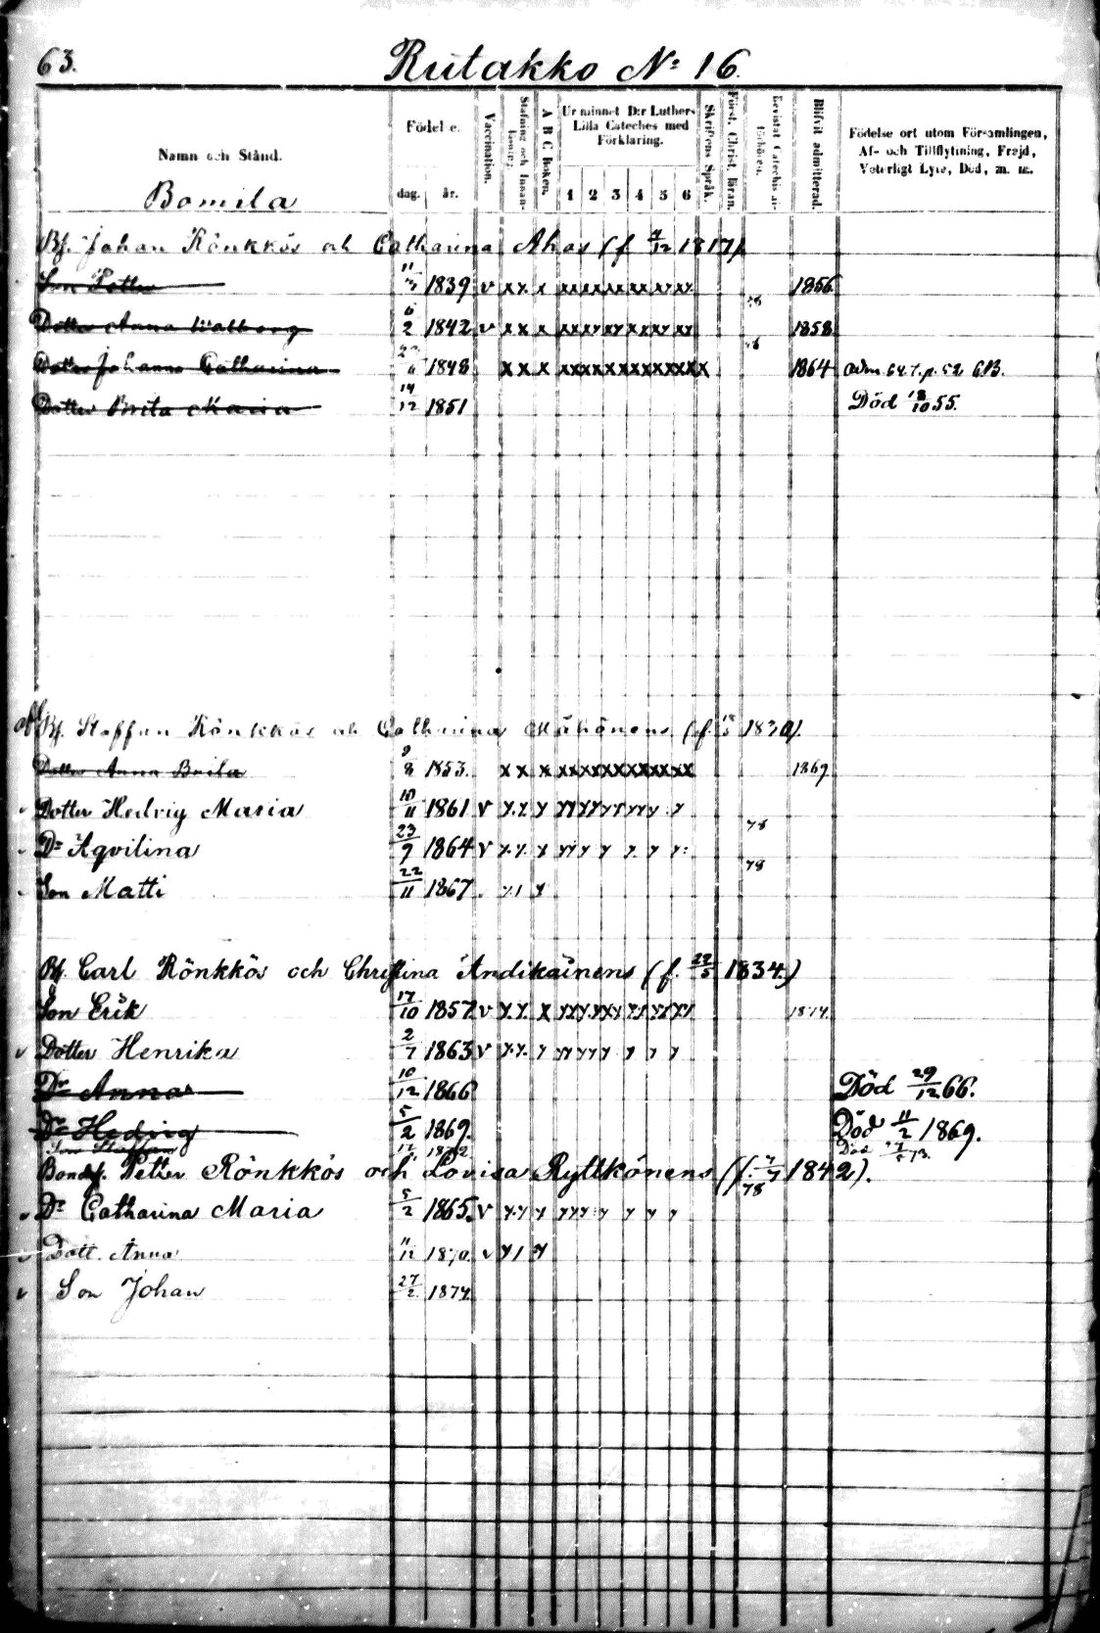 63. Rutakko No 16.
Namn och Stånd.
Bomila
Födelse.
dag. år.
Vaccination.
Stafning och Innanläsning.
A B C Boken.
Ur minnet D:r Luthers Lilla Cateches med Förklaring.
1 2 3 4 5 6
Skriftens Språk.
Först. Christ. läran.
Bevistat Catechis at förhören.
Blifvit admitterad.
Födelse ort utom Församlingen, Af- och Tillflyttning, Frejd, Vaterligt Lyte, Död, m. m.
Bf. Johan Rönkkös och Catharina Ahos (f. 1817).
Son Petter 1839 v x x x xx xx xx xx xx xx 1856
Dotter Anna Walborg 6/2 1842 v x x x xx xx xx xx xx xx 1858
Dotter Johanna Catharina 1848 x x x xx xx xx xx xx xx x 1864 adm. 64. p. 52 CB.
Dotter Brita Maria 14/12 1851 Död 18/10 55.
Bf. Staffan Rönkkös och Catharina Mähönens (f. 1830).
Dotter Anna Brita 9/8 1853. x x x xx xx xx xx xx xx 1869
Dotter Hedvig Maria 10/11 1861 v
78
Dr Aqvilina 23/9 1864 v
78
Son Matti 22/11 1867
Bf. Carl Rönkkös och Christina Andikainens (f. 22/5 1834.)
Son Erik 17/10 1857 v 1874
Dotter Henrika 2/7 1863 v
Dr Anna 10/12 1866 Död 29/12 66.
Dr Hedvig 5/2 1869. Död 11/2 1869.
Son Staffan 1872 Död 73.
Bondf. Petter Rönkkös och Lovisa Ryttkönens (f. 7/7 1842).
78
Dr Catharina Maria 5/2 1865. v
Dott. Anna 11/12 1870. v
Son Johan 27/2 1874.